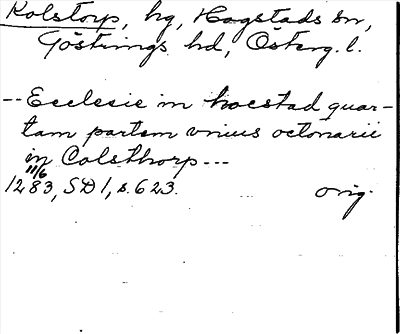 Kolstorp, hg, Hogstads sn,
Göstrings hd, Österg. l.
-- Ecclesie in hocstad quar-
tam partem vnius octonarii
in Colsthorp ---
11/6
1283, SD 1, s. 623. orig.